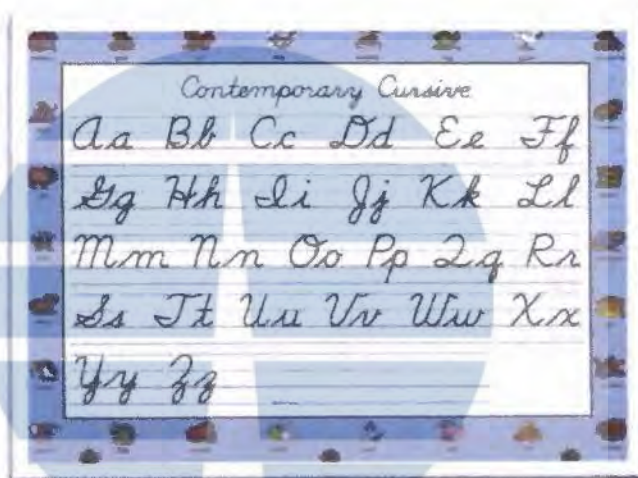 Contemporary Cursive
Aa Bb Cc Dd Ee Ff
Gg Hh Ii Jj Kk Ll
Mm Nn Oo Pp Qq Rr
Ss Tt Uu Vv Ww Xx
Yy Zz